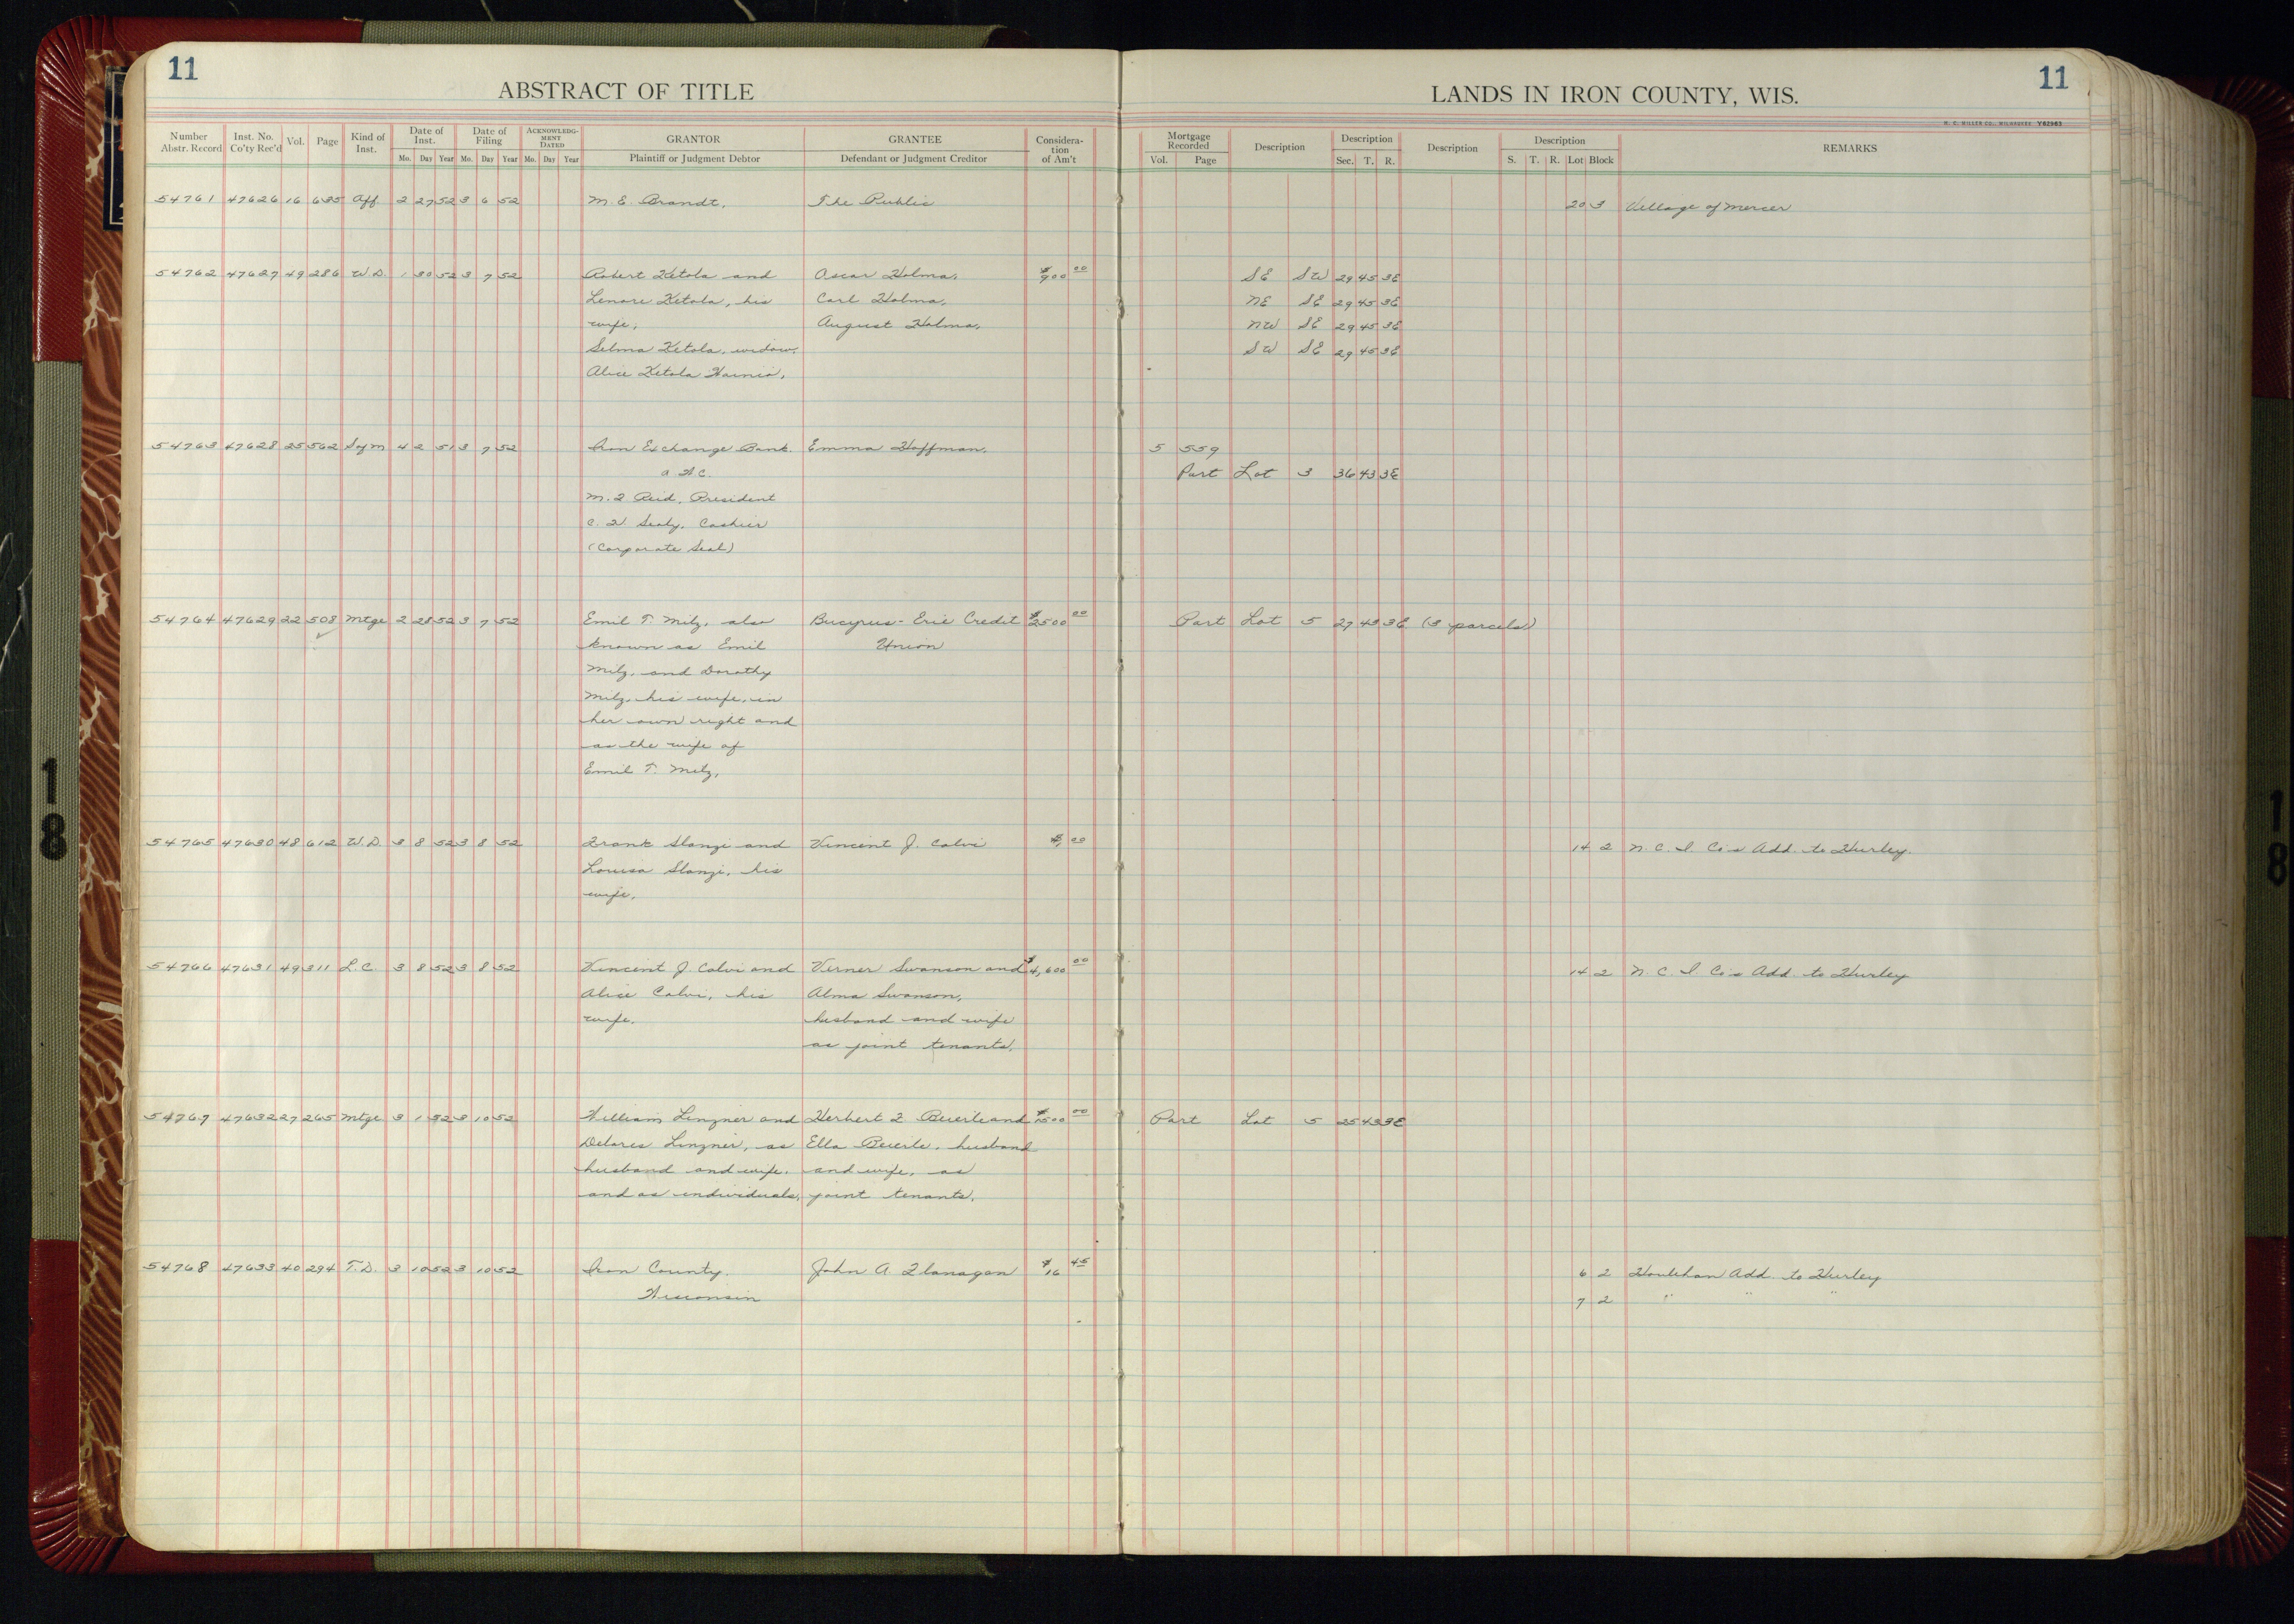 11
ABSTRACT OF TITLE
LANDS IN IRON COUNTY, WIS.
11
H. C. MILLER CO., MILWAUKEE Y62963
Number Abstr. Record Inst. No. Co'ty Rec'd Vol. Page Kind of Inst. Date of Inst. Mo. Day Year Date of Filing Mo. Day Year ACKNOWLEDGMENT DATED Mo. Day Year GRANTOR Plaintiff or Judgment Debtor GRANTEE Defendant or Judgment Creditor Consideration of Am't Mortgage Recorded Vol. Page Description Description Sec. T. R. Description Description S. T. R. Lot Block REMARKS
54761 47626 16 635 Aff 2 27 52 3 6 52 M. E. Brandt, The Public 20 3 Village of Mercer
54762 47627 49 286 W.D. 1 30 52 3 7 52 Robert Ketola and Oscar Holma, $900 00 SE SW 29 45 3E
Lenore Ketola, his Carl Holma, NE SE 29 45 3E
wife, August Holma, NW SE 29 45 3E
Selma Ketola, widow, SW SE 29 45 3E
Alice Ketola
54763 47628 25 562 4 2 51 3 7 52 Iron Exchange Bank Emma Hoffman, 5 559
Part Lot 3 36 43 3E
M. J. Reid, President
Cashier
(Corporate Seal)
54764 47629 22 508 Mtge 2 28 52 3 7 52 Emil T. Milz, also Bucyrus-Erie Credit $2500 00 Part Lot 5 27 43 3E (3 parcels)
known as Emil Union
Milz, and Dorothy
Milz, his wife, in
her own right and
as the wife of
Emil T. Milz,
54765 47630 48 612 W.D. 3 8 52 3 8 52 Frank Slanzi and Vincent J. Calvi $1 00 14 2 N. C. I. Co's Add. to Hurley.
Louisa Slanzi, his
wife,
54766 47631 49 311 L.C. 3 8 52 3 8 52 Vincent J. Calvi and Verner Swanson and $4,600 00 14 2 N. C. I. Co's Add. to Hurley
Alice Calvi, his Alma Swanson,
wife. husband and wife
as joint tenants.
54767 47632 27 265 Mtge 3 1 52 3 10 52 William Linzner and Herbert F Beierle and $1500 00 Part Lot 5 25 43 3E
Delores Linzner, as Ella Beierle, husband
husband and wife, and wife, as
and as individuals, joint tenants,
54768 47633 40 294 T.D. 3 10 52 3 10 52 Iron County, John A. Flanagan $16 45 6 2 Houlehan Add. to Hurley
Wisconsin 7 2 " " "
18
18